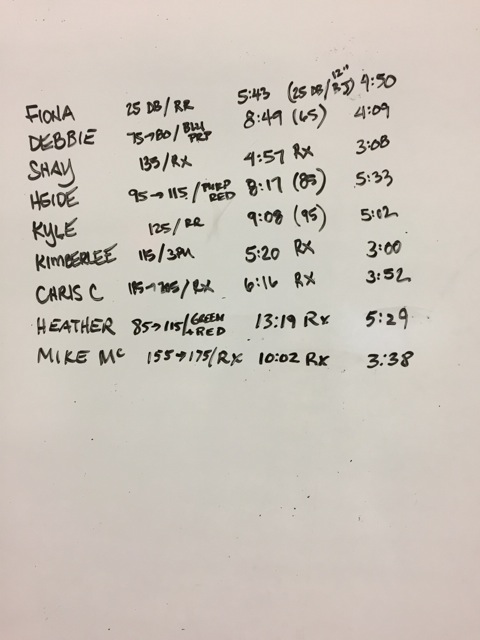 FIONA 25 DB/RR 5:43 (25 DB/12" BJ) 4:50
DEBBIE 75→80/BLU PRP 8:49 (65) 4:09
SHAY 135/RX 4:57 RX 3:08
HEIDE 95→115/PURP RED 8:17 (85) 5:33
KYLE 125/RR 9:08 (95) 5:02
KIMBERLEE 115/3PM 5:20 RX 3:00
CHRIS C /RX 6:16 RX 3:52
HEATHER 85→115/GREEN +RED 13:19 RX 5:29
MIKE Mc 155→175/RX 10:02 RX 3:38